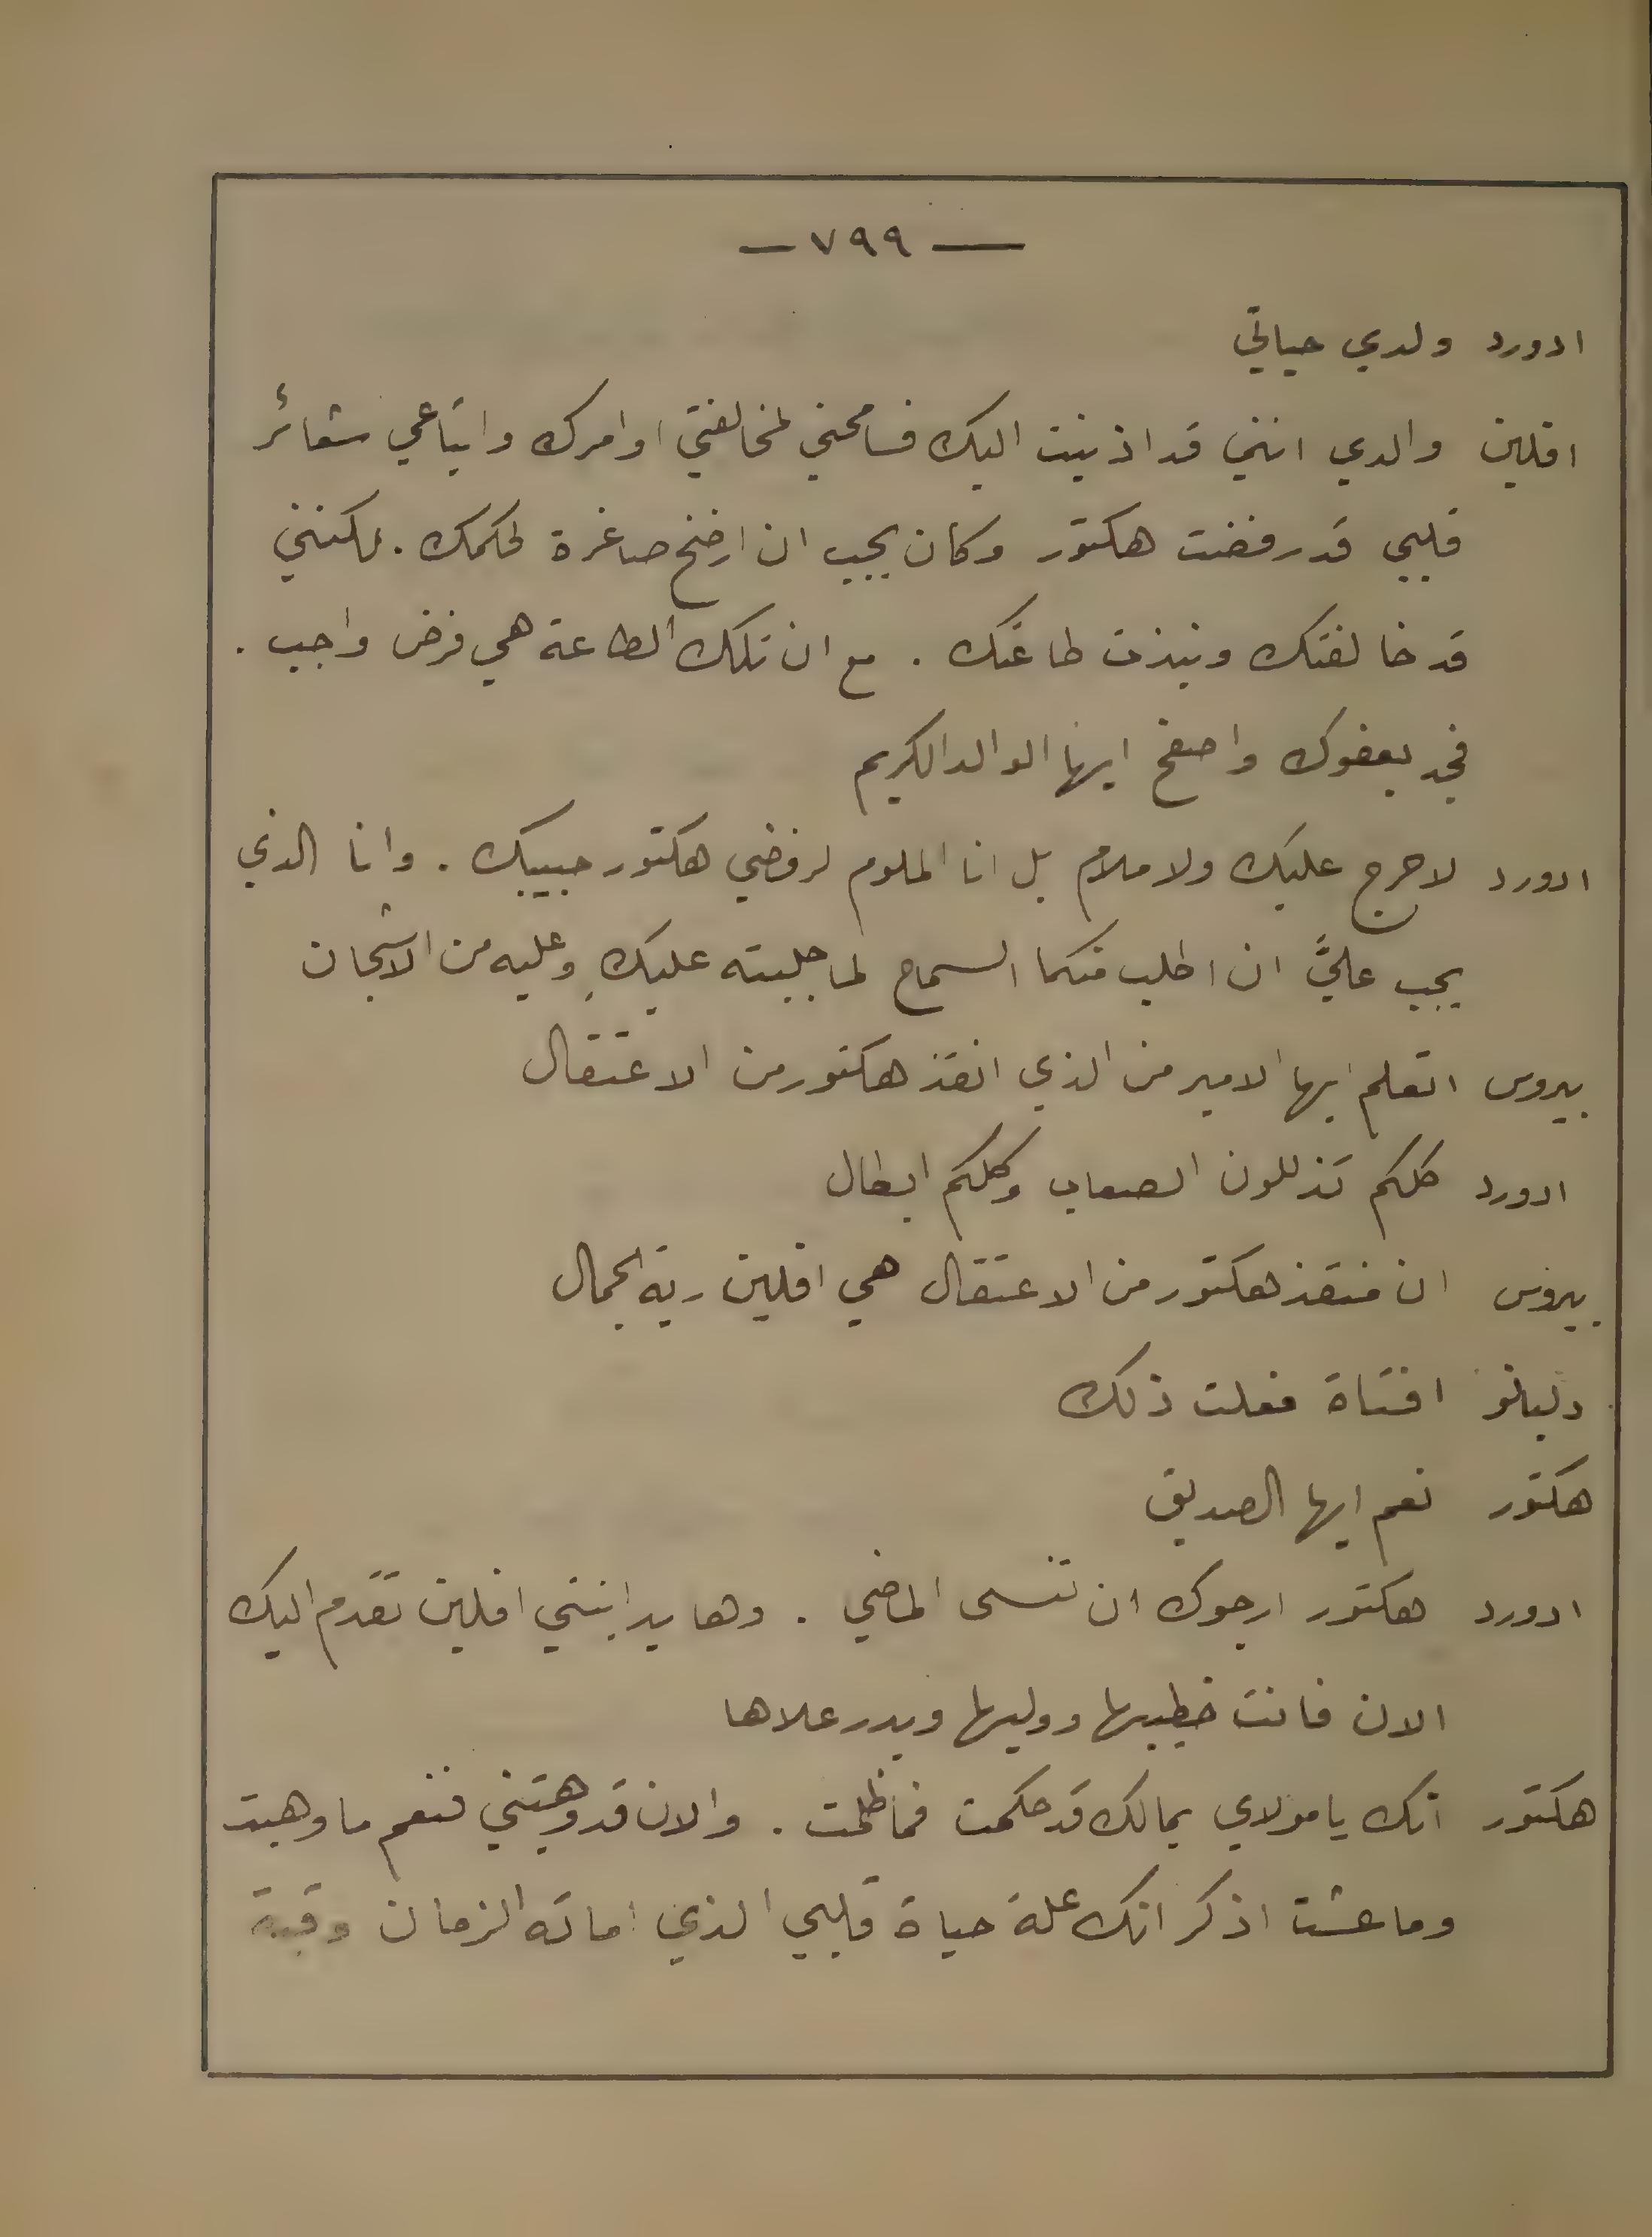 — ٧٩٩ —
ادورد ولدي حياتي
افلين والدي انني قد اذنبت اليك فسامحني لمخالفتي اوامرك واتباعي شعائر
قلبي قد رفضت هكتور وكان يجب ان ارضخ صاغرة لحكمك . لكنني
قد خالفتك ونبذت طاعتك . مع ان تلك الطاعة هي فرض واجب .
فجد بعفوك واصفح ايها الوالد الكريم
ادورد لا حرج عليك ولا ملام بل انا الملوم لرفضي هكتور حبيبك . وانا الذي
يجب عليَّ ان اطلب منكما السماح لما جلبته عليكِ وعليه من الاشجان
بيروس اتعلم ايها الامير من الذي انقذ هكتور من الاعتقال
ادورد كلكم تذللون الصعاب وكلكم ابطال
بيروس ان منقذ هكتور من الاعتقال هي افلين ربة الجمال
افتاة فعلت ذلك
هكتور نعم ايها الصديق
ادورد هكتور ارجوك ان تنسى الماضي . وها يد ابنتي افلين تقدم اليك
الان فانت خطيبها ووليها وبدر علاها
هكتور انك يا مولاي بمالك قد حكمت فما ظلمت . والان قد وهبتني فنعم ما وهبت
وما عشت اذكر انك علة حياة قلبي الذي اماته الزمان